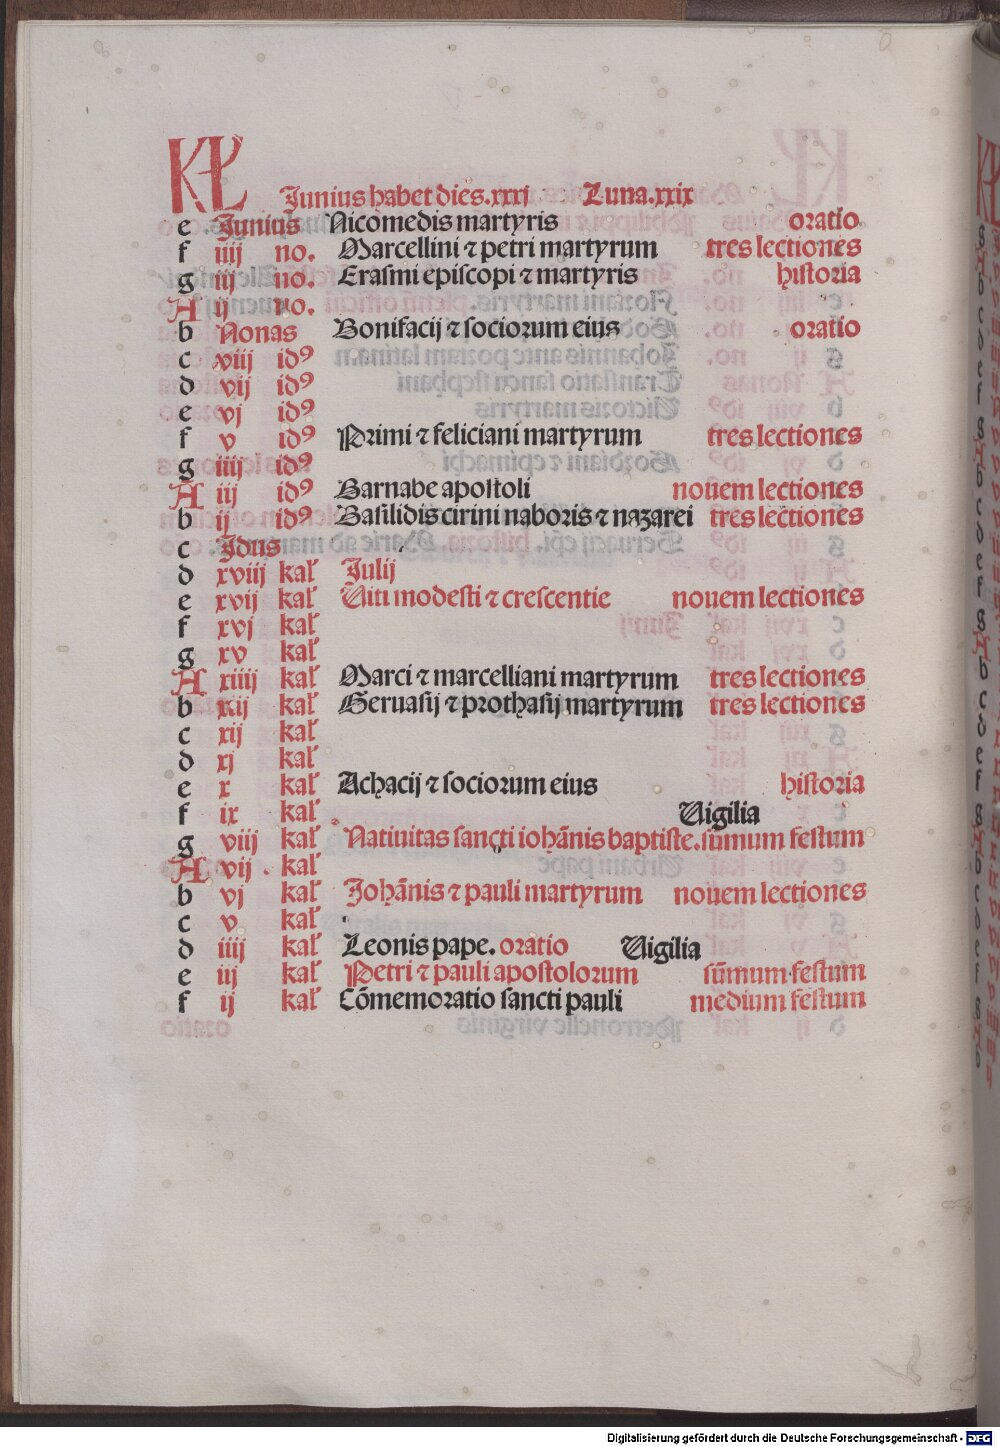 KL
Junius habet dies.xxxj Luna.xxix
e Junius Nicomedis martyris oratio
f iiij no. Marcellini ⁊ petri martyrum tres lectiones
g iij no. Erasmi episcopi ⁊ martyris historia
A ij no.
b Nonas Bonifacij ⁊ sociorum eius oratio
c viij idꝰ
d vij idꝰ
e vj idꝰ
f v idꝰ Primi ⁊ feliciani martyrum tres lectiones
g iiij idꝰ
A iij idꝰ Barnabe apostoli nouem lectiones
b ij idꝰ Basilidis cirini naboris ⁊ nazarei tres lectiones
c Jdus
d xviij kał Julij
e xvij kał Viti modesti ⁊ crescentie nouem lectiones
f xvj kał
g xv kał
A xiiij kał Marci ⁊ marcelliani martyrum tres lectiones
b xiij kał Geruasij ⁊ prothasij martyrum tres lectiones
c xij kał
d xj kał
e x kał Achacij ⁊ sociorum eius historia
f ix kał Vigilia
g viij kał Natiuitas sancti iohānis baptiste. sūmum festum
A vij kał
b vj kał Johānis ⁊ pauli martyrum nouem lectiones
c v kał
d iiij kał Leonis pape. oratio Vigilia
e iij kał Petri ⁊ pauli apostolorum sūmum festum
f ij kał Cōmemoratio sancti pauli medium festum
Digitalisierung gefördert durch die Deutsche Forschungsgemeinschaft - DFG